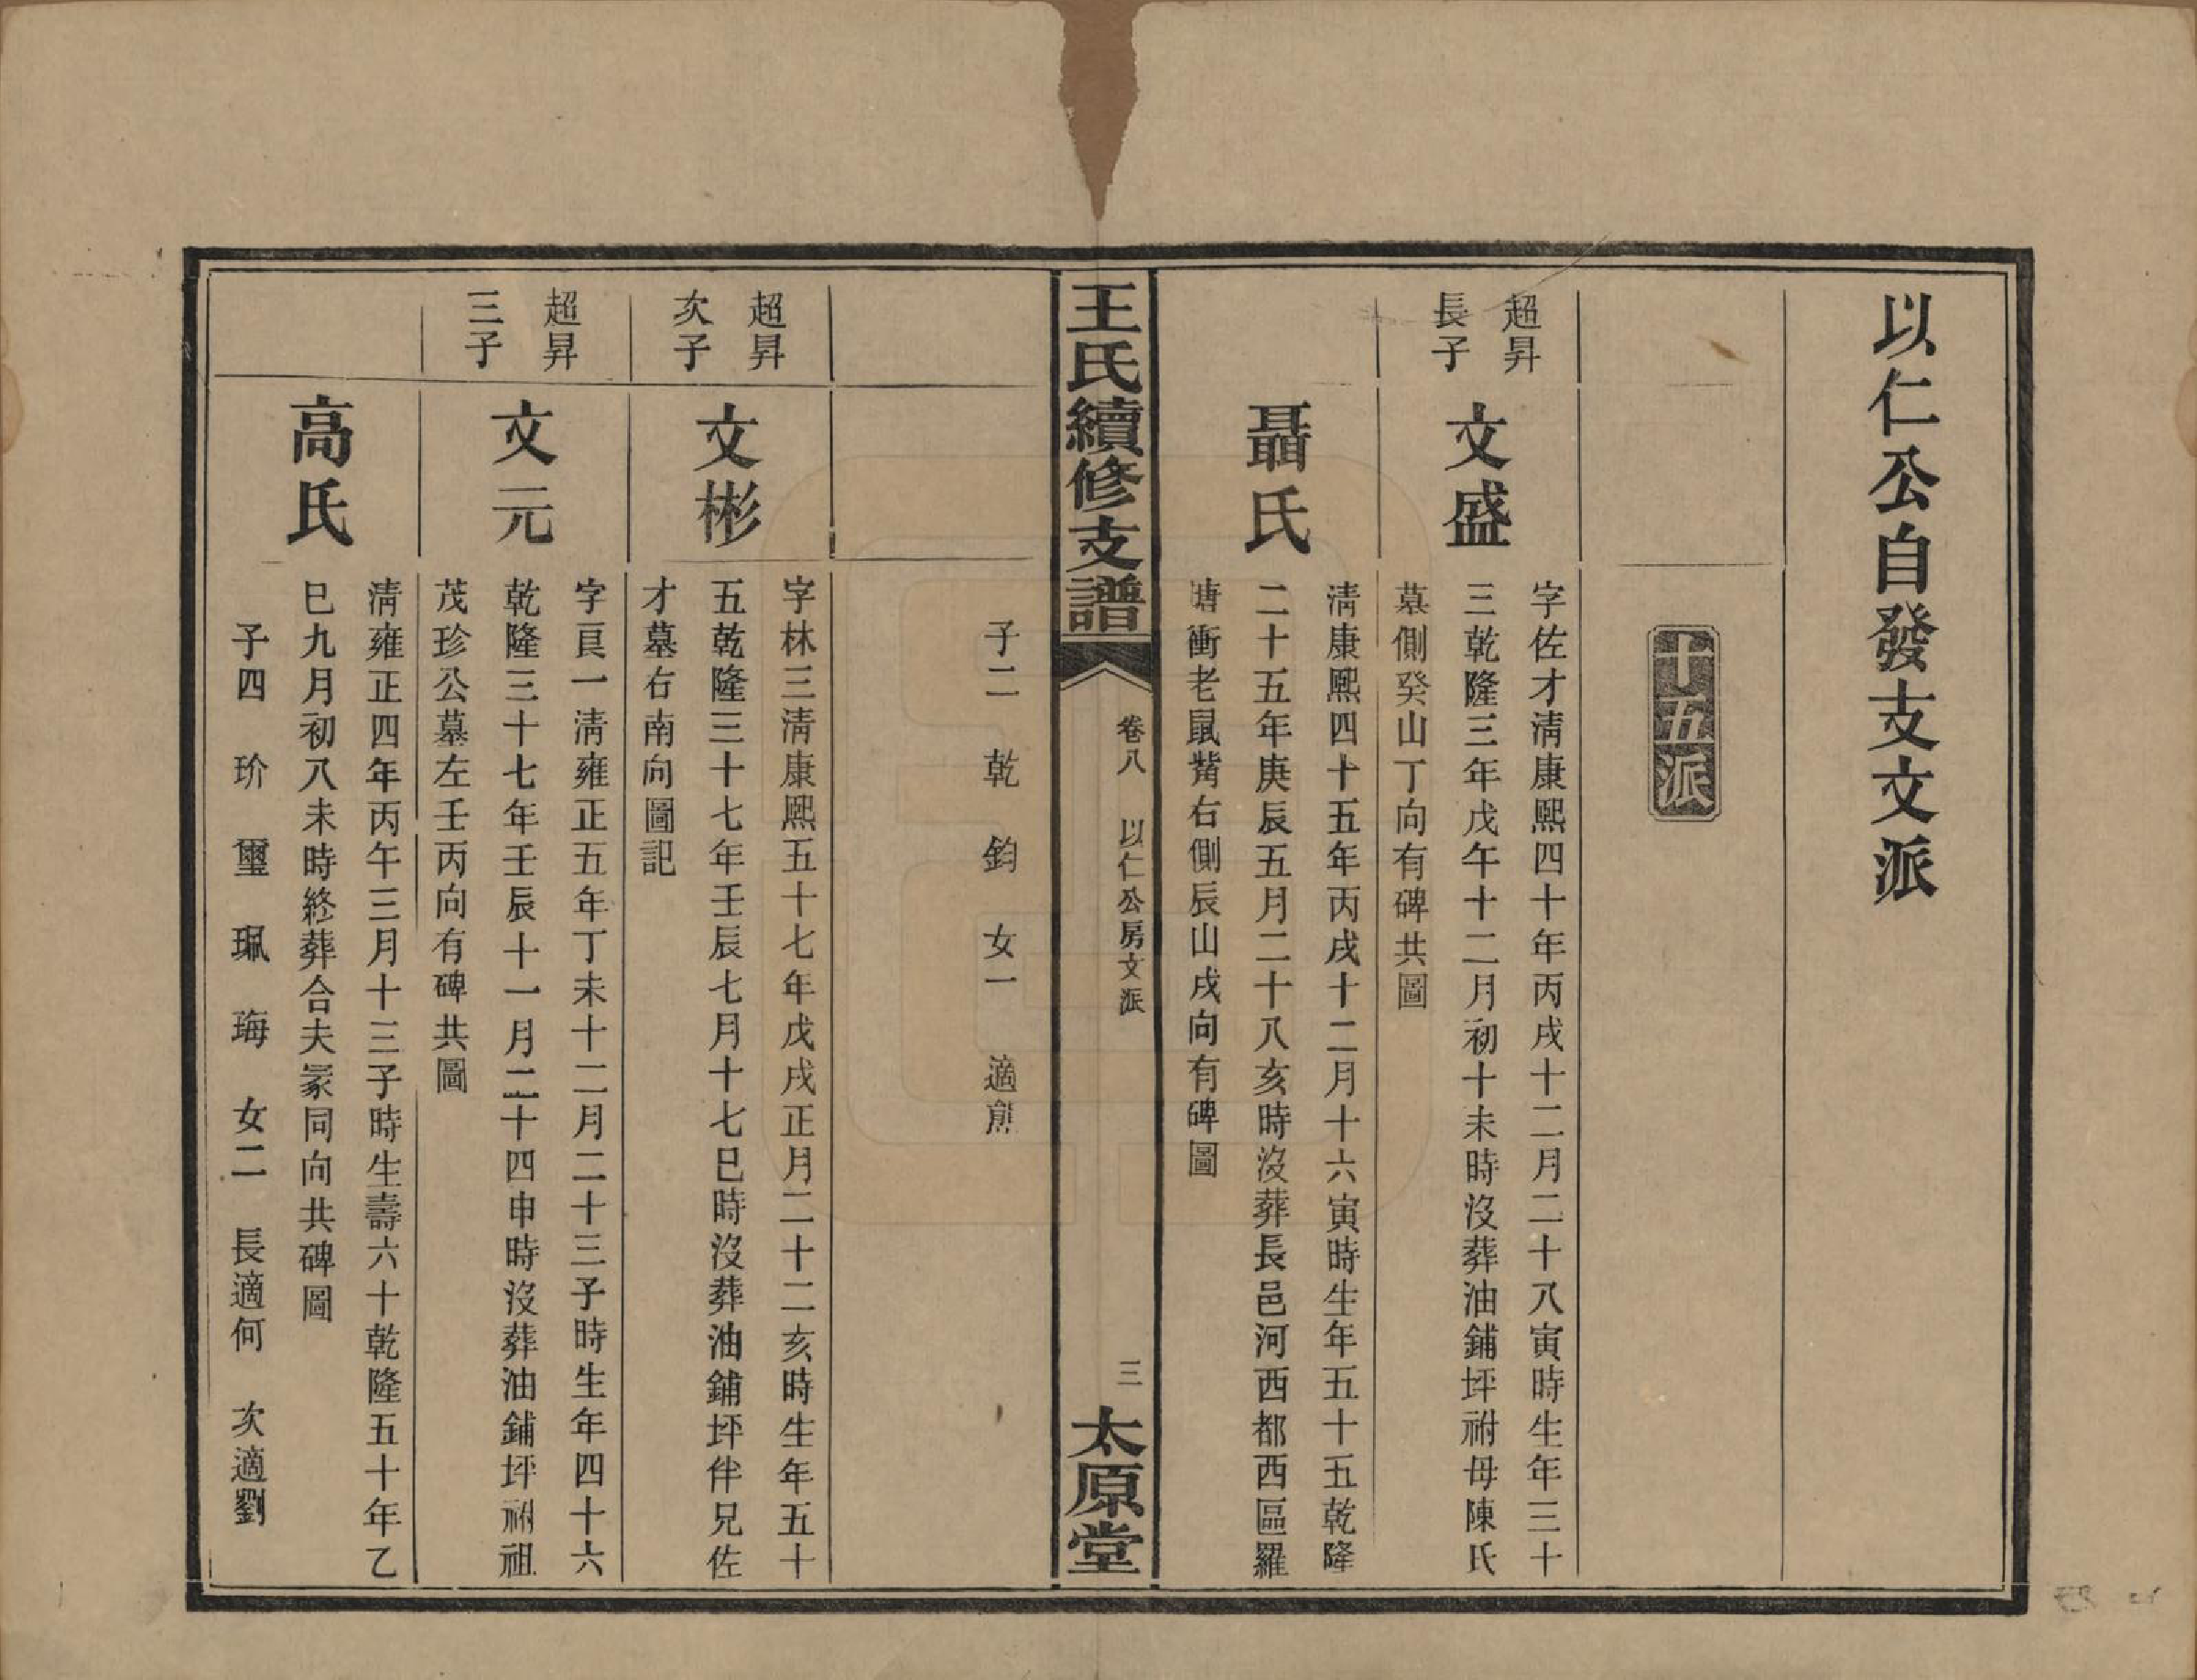 以仁公自發支文派
十五派
超昇
長子
文盛
字佐才淸康熙四十年丙戌十二月二十八寅時生年三十
三乾隆三年戊午十二月初十未時沒葬油鋪坪祔母陳氏
墓側癸山丁向有碑共圖
聶氏
淸康熙四十五年丙戌十二月十六寅時生年五十五乾隆
二十五年庚辰五月二十八亥時沒葬長邑河西都西區羅
塘衝老鼠觜右側辰山戌向有碑圖
王氏續修支譜
卷八
以仁公房文派
三
太原堂
子二 乾 鈞 女一 適熊
超昇
次子
文彬
字林三淸康熙五十七年戊戌正月二十二亥時生年五十
五乾隆三十七年壬辰七月十七巳時沒葬油鋪坪伴兄佐
才墓右南向圖記
超昇
三子
文元
字員一淸雍正五年丁未十二月二十三子時生年四十六
乾隆三十七年壬辰十一月二十四申時沒葬油鋪坪祔祖
茂珍公墓左壬丙向有碑共圖
高氏
淸雍正四年丙午三月十三子時生壽六十乾隆五十年乙
巳九月初八未時終葬合夫冢同向共碑圖
子四 玠 璽 珮 𤦺 女二 長適何 次適劉